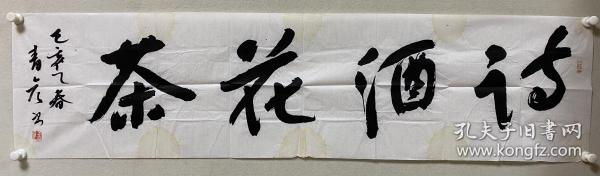 诗酒花茶
乙亥春
青
孔夫子旧书网
www.kongfz.com